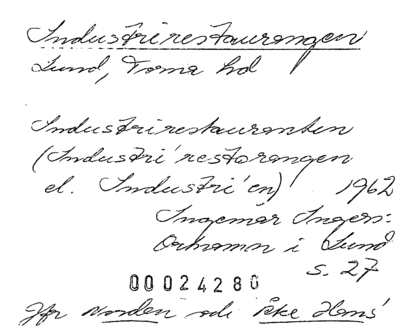 Industrirestaurangen
Lund, Torna hd
Industrirestauranten
(Industri'restorangen
el. Industri'en) 1962
Ingemar Ingers:
Ortnamn i Lund
s. 27
00024280
Jfr Norden och Åke Hans'